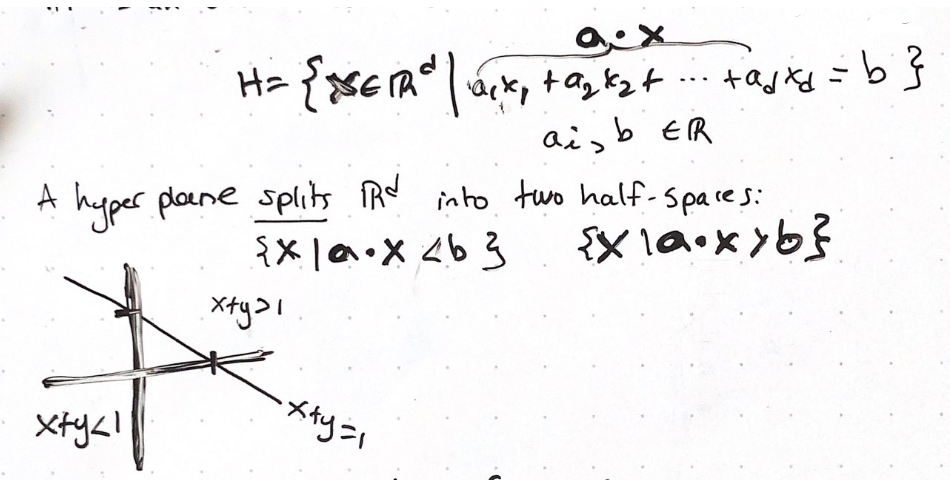 a · x
H = {x ∈ ℝᵈ | a₁x₁ + a₂x₂ + ··· + a_d x_d = b }
aᵢ, b ∈ ℝ
A hyper plane splits ℝᵈ into two half-spaces:
{x | a · x < b } {x | a · x > b}
x+y>1
x+y<1
x+y=1